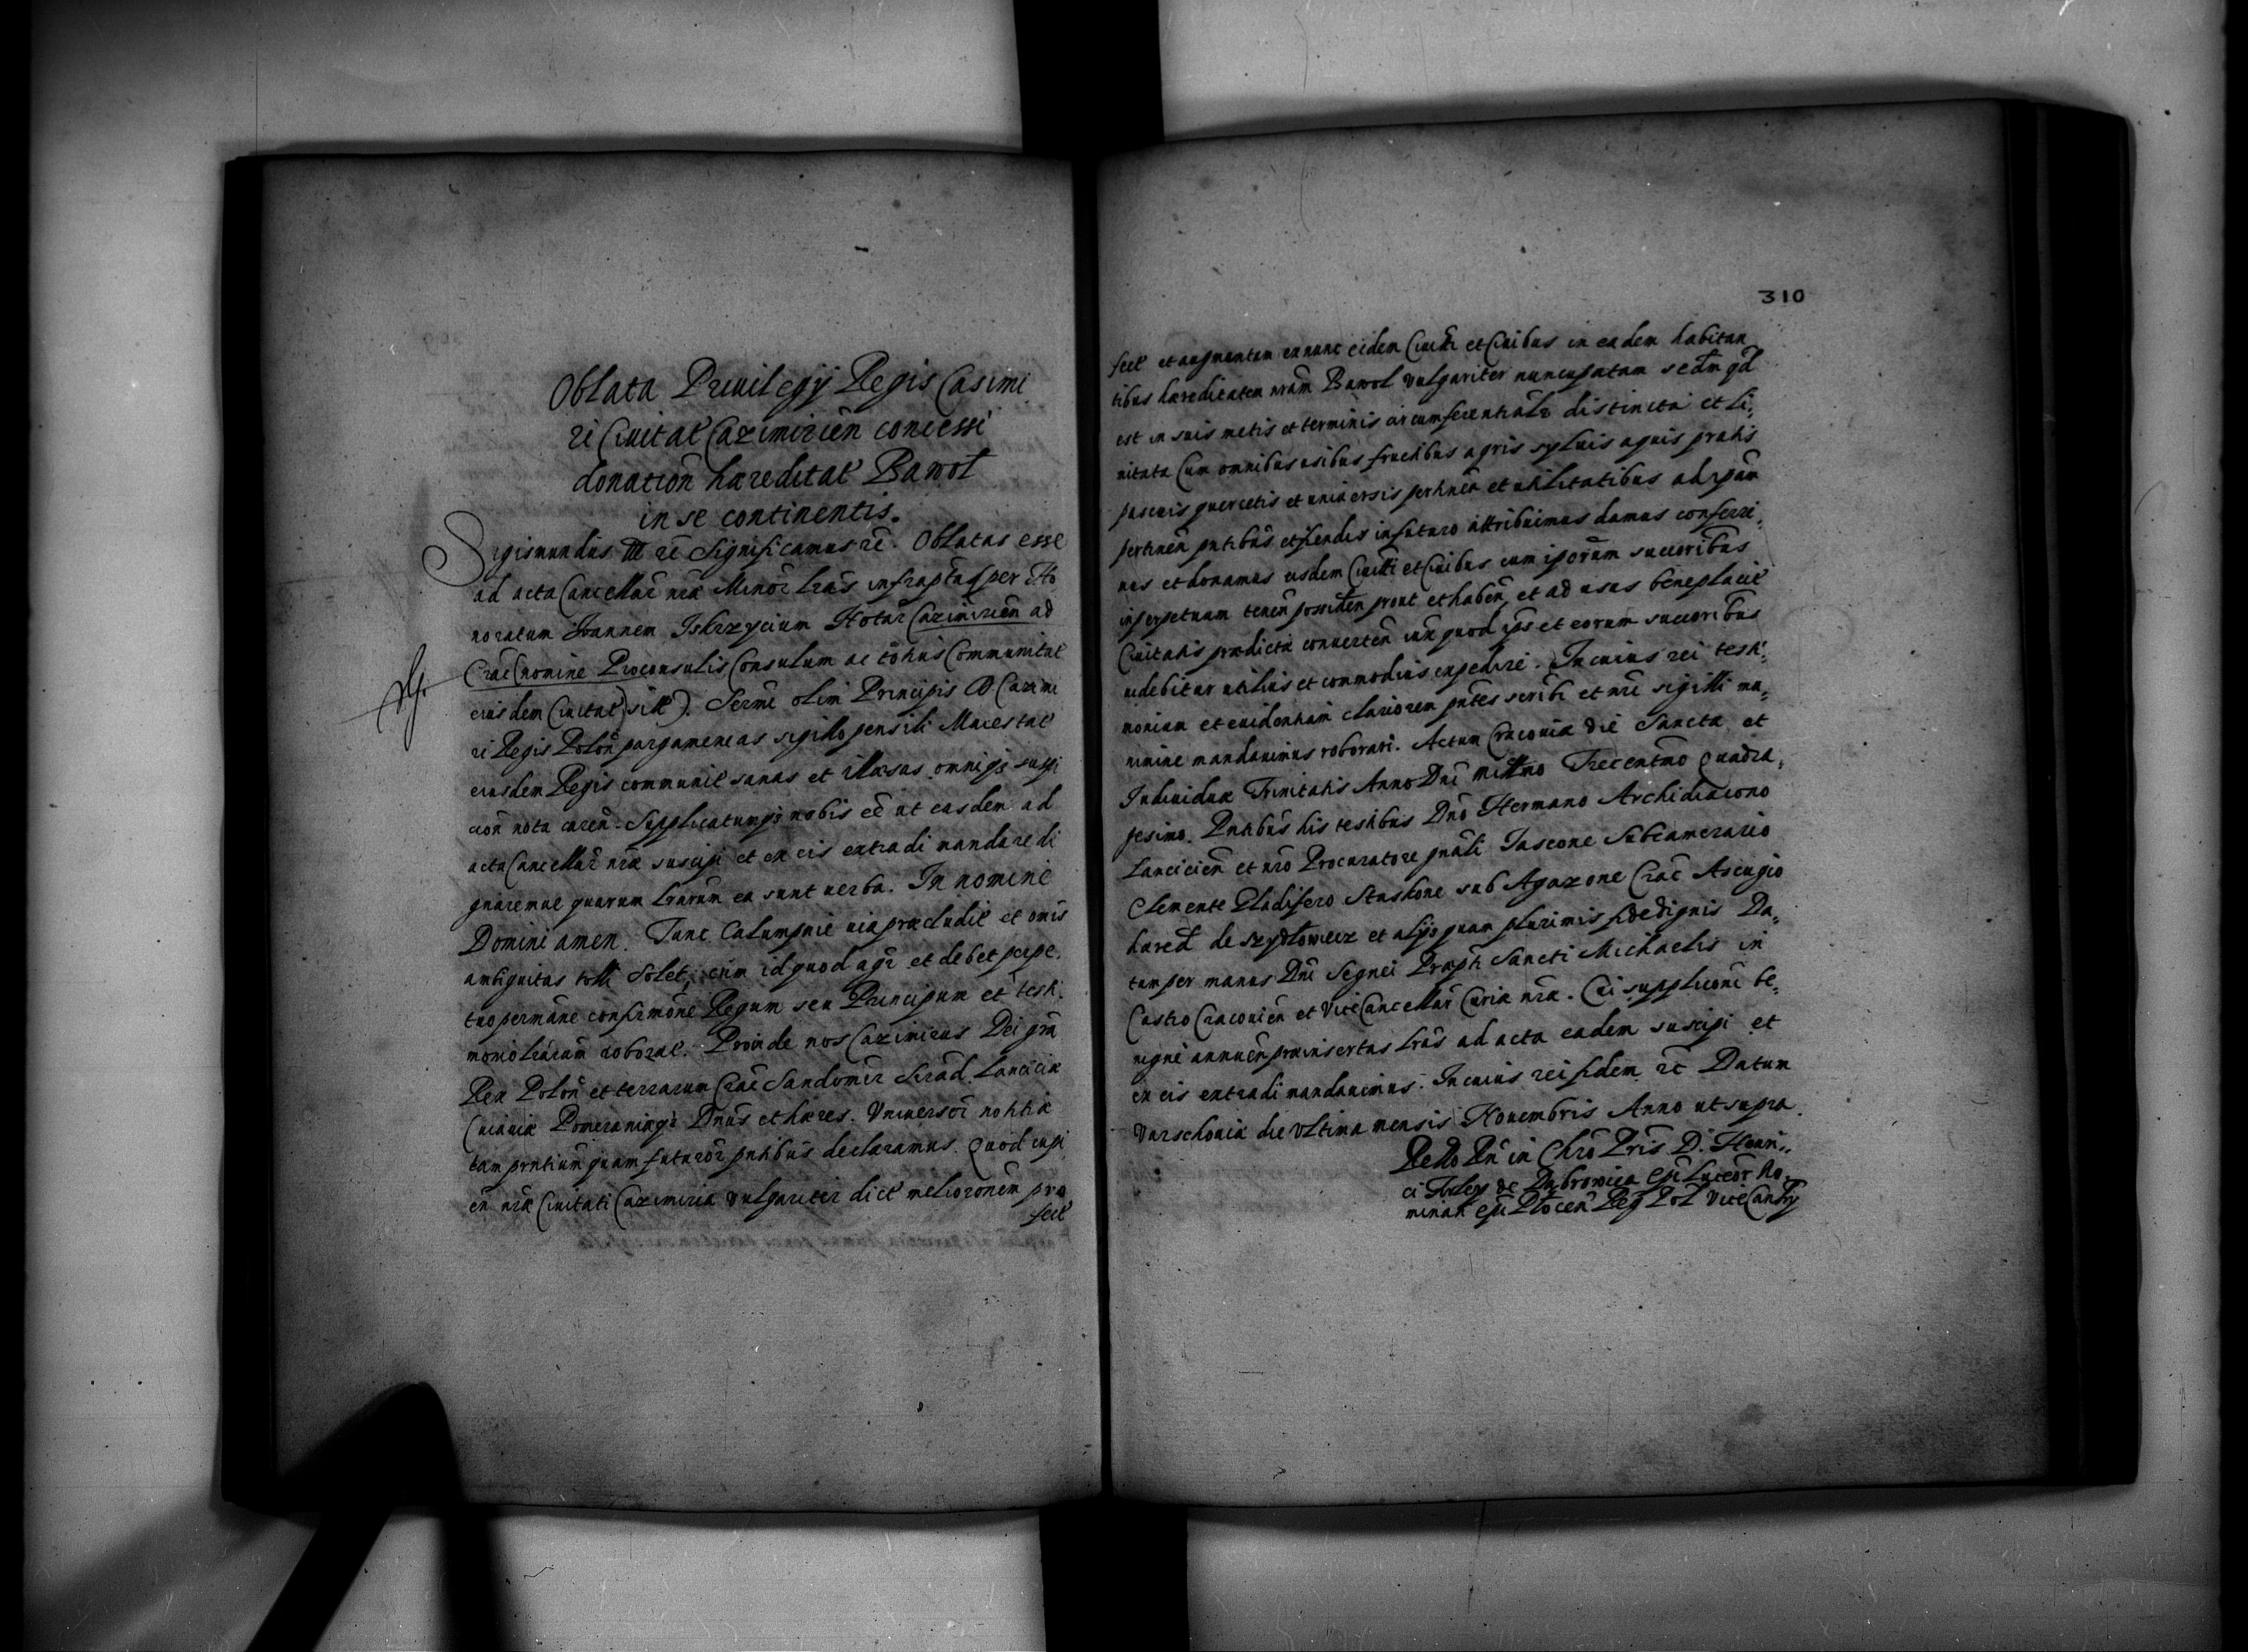 Oblata Priuilegÿ Regis Casimi
ri Ciuitat Cazimirien̄ concessi
donation̄ hæreditat Bawoł
in se continentis.
Sigismundus III rc̄ Significamus rc̄. Oblatas esse
ad acta Cancellar̄ nr̄æ Minor̄ lrās infrapta per Ho
noratum Joannem Iskrzycium Notar̄ Cazimirien̄ ad
Crac̄ nomine Proconsulis Consulum ac totius Communitat
eiusdem Ciuitat) sitt). Sermi olim Principis D Cazimi
ri Regis Polon̄ pargameneas sigillo pensili Maiestat
eiusdem Regis communit sanas et illæsas omniqꝫ suspi
cion̄ nota caren̄. Supplicatumqꝫ nobis eē ut easdem ad
acta Cancellar̄ nr̄æ suscipi et ex eis extradi mandare di
gnaremur quarum lrārum ea sunt uerba. In nomine
Domini amen. Tunc Calumpnie uia præcludit et omīs
ambiguitas tolli solet, cum id quod agr̄ et debet perpe
tuo permāne confirmōne Regum seu Principum et testi
monio lrārum roborat. Proinde nos Cazimirus Dei grā
Rex Polon̄ et terrarum Crac̄ Sandomir̄ Sirad. Lancicie
Cuiauiæ Pomeraniæqꝫ Dn̄us et hæres. Vniuersor̄ notitiæ
tam prntium̄ quam futuror̄ pn̄tibus declaramus. Quod cupi
en̄ nr̄æ Ciuitati Cazimiria vulgariter dict melioronem pro
fect
310
fect et augmentum ex nunc eidem Ciuitti et Ciuibus in eadem habitan
tibus hæreditatem nrām Bawoł vulgariter nuncupatam sedm qd
est in suis metis et terminis circumferentialr̄ distincta et li
mitata Cum omnibus usibus fructibus agris syluis aquis pratis
pascuis quercetis et uniuersis pertinen̄ et utilitatibus ad ipam̄
pertinen̄ pn̄tibus et fiendis in futuro attribuimus damus conferri
mus et donamus eisdem Ciuitti et Ciuibus cum iporūm successoribus
in perpetuam tenen̄ possiden̄ prout et haben̄ et ad usus beneplacit
Ciuitatis prædictæ conuerten̄ iux quod ip̄s et eorum successoribus
uidebitur utilius et commodius expedire. In cuius rei testi
monium et euidentiam clariorem pn̄tes scribi et nr̄i sigilli mu
nimine mandauimus roborari. Actum Cracouiæ die Sanctæ et
Indiuiduæ Trinitatis Anno Dn̄i Mill̄mo Trecentmo Quadra
gesimo. Pn̄tibus his testibus Dn̄o Hermano Archidiacono
Lancicien̄ et nrō Procuratore gnāli Jascone Subcamerario
Clemente Gladifero Staskone sub Agazone Crac̄ Ascugio
hæred de Szydłowiecz et alÿs quam plurimis fidedignis Da
tum per manus Dn̄i Segnei Præpti Sancti Michaelis in
Castro Cracouien̄ et ViceCancellar̄ Curiæ nr̄æ. Cui supplicōni be
nigne annuen̄ præinsertas lrās ad acta eadem suscipi et
ex eis extradi mandauimus. In cuius rei fidem rc̄ Datum
Varschouiæ die vltima mensis Nouembris Anno ut supra.
Rello Rn̄ in Chrō Pris D. Henri
ci Firley de Dąbrowica Epī Luceor̄ No
minati Epī Plocen̄ Reḡ Pol ViceCanc̄ry